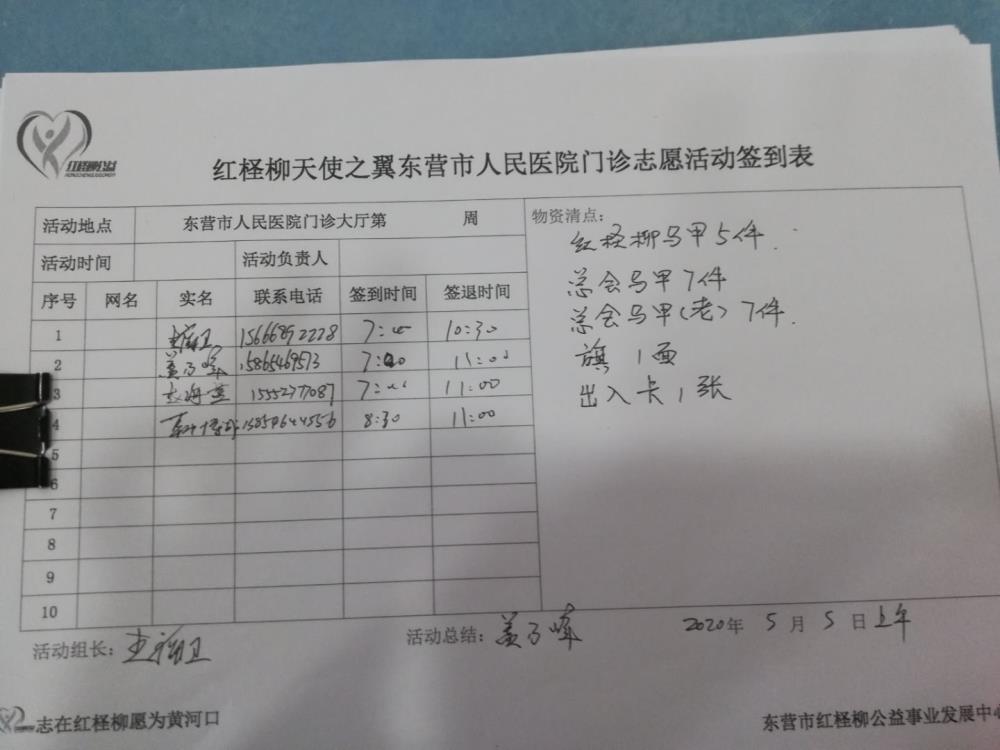 红柽柳公益
HONGCHENGLIUGONGYI
红柽柳天使之翼东营市人民医院门诊志愿活动签到表
活动地点 东营市人民医院门诊大厅第 周
活动时间 活动负责人
序号 网名 实名 联系电话 签到时间 签退时间
1 15666892228 7: 10:30
2 15865469573 7:00 11:00
3 15552777087 7: 11:00
4 8:30 11:00
5
6
7
8
9
10
物资清点:
红柽柳马甲5件.
总会马甲7件
总会马甲(老)7件.
旗1面
出入卡1张
活动组长: 活动总结: 2020年5月5日上午
志在红柽柳愿为黄河口
东营市红柽柳公益事业发展中心